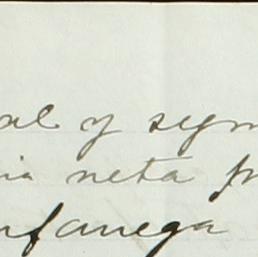 al y segm
ia neta p
nfanega